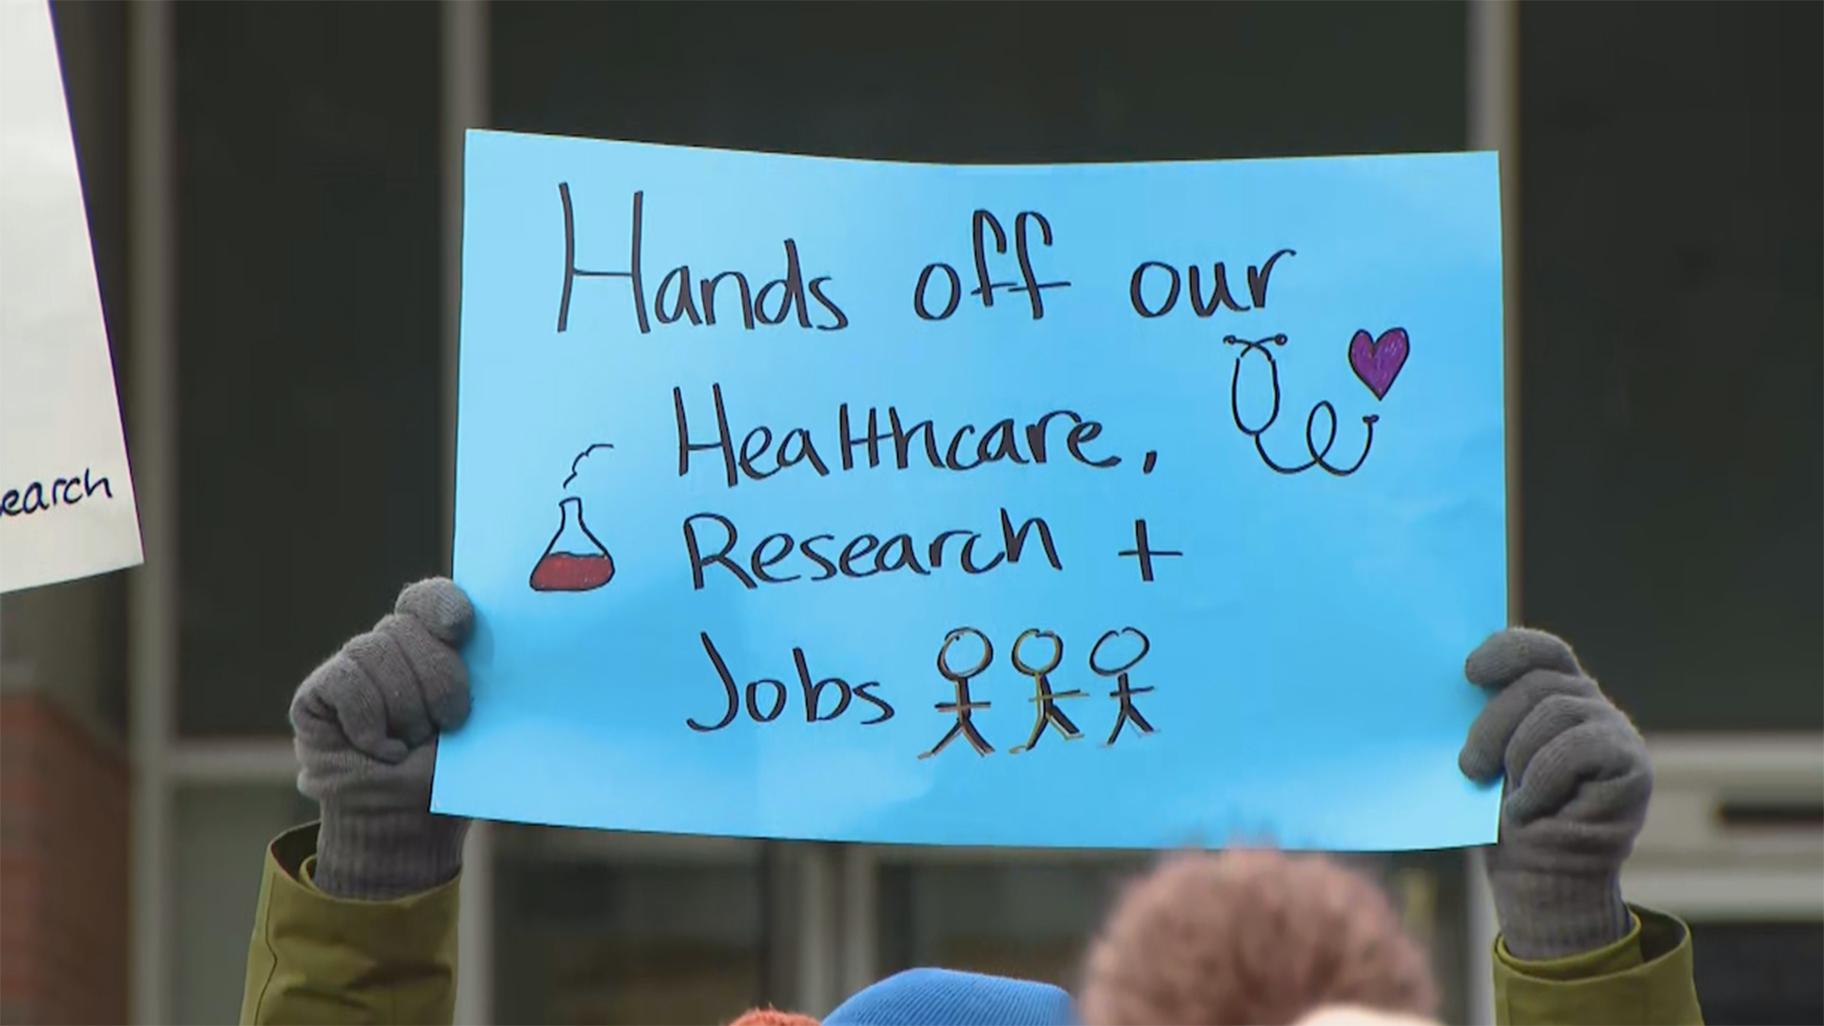 Hands off our
Healthcare,
Research +
Jobs
earch